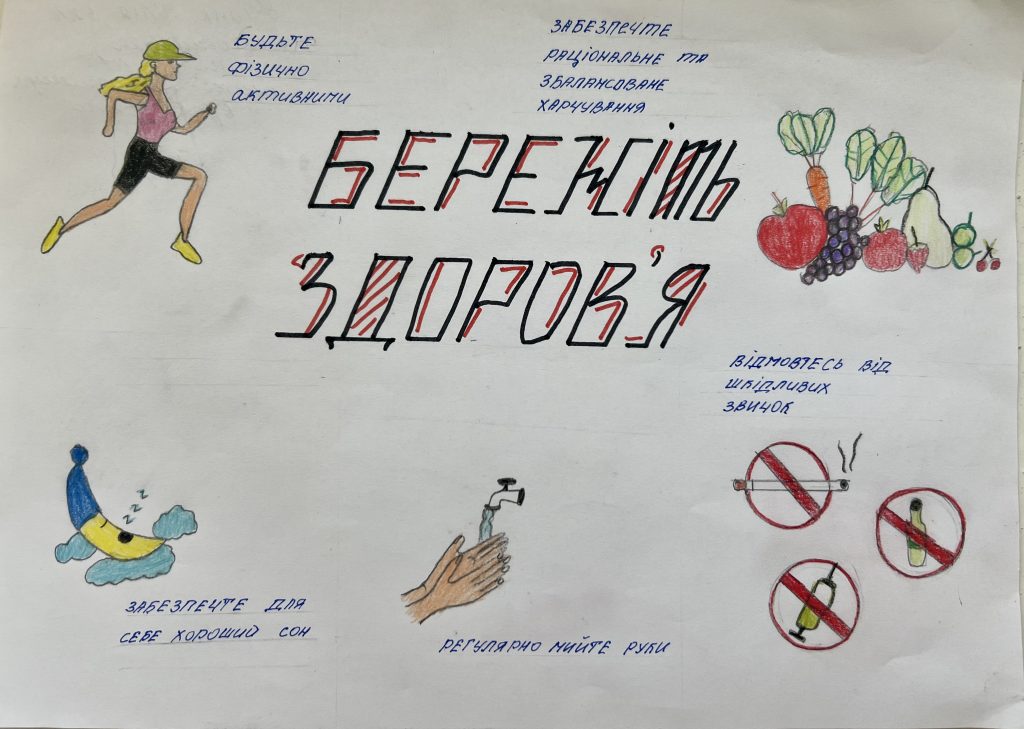 БУДЬТЕ
ФІЗИЧНО
АКТИВНИМИ
ЗАБЕЗПЕЧТЕ
РАЦІОНАЛЬНЕ ТА
ЗБАЛАНСОВАНЕ
ХАРЧУВАННЯ
БЕРЕЖІТЬ
ЗДОРОВ'Я
ВІДМОВТЕСЬ ВІД
ШКІДЛИВИХ
ЗВИЧОК
z
z
z
ЗАБЕЗПЕЧТЕ ДЛЯ
СЕБЕ ХОРОШИЙ СОН
РЕГУЛЯРНО МИЙТЕ РУКИ